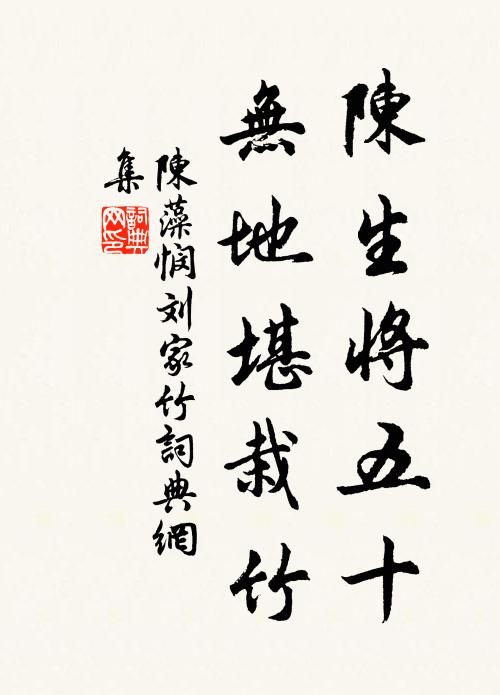 陳生將五十
無地堪栽竹
陳藻悯刘家竹詞典網
集
詞典
网印